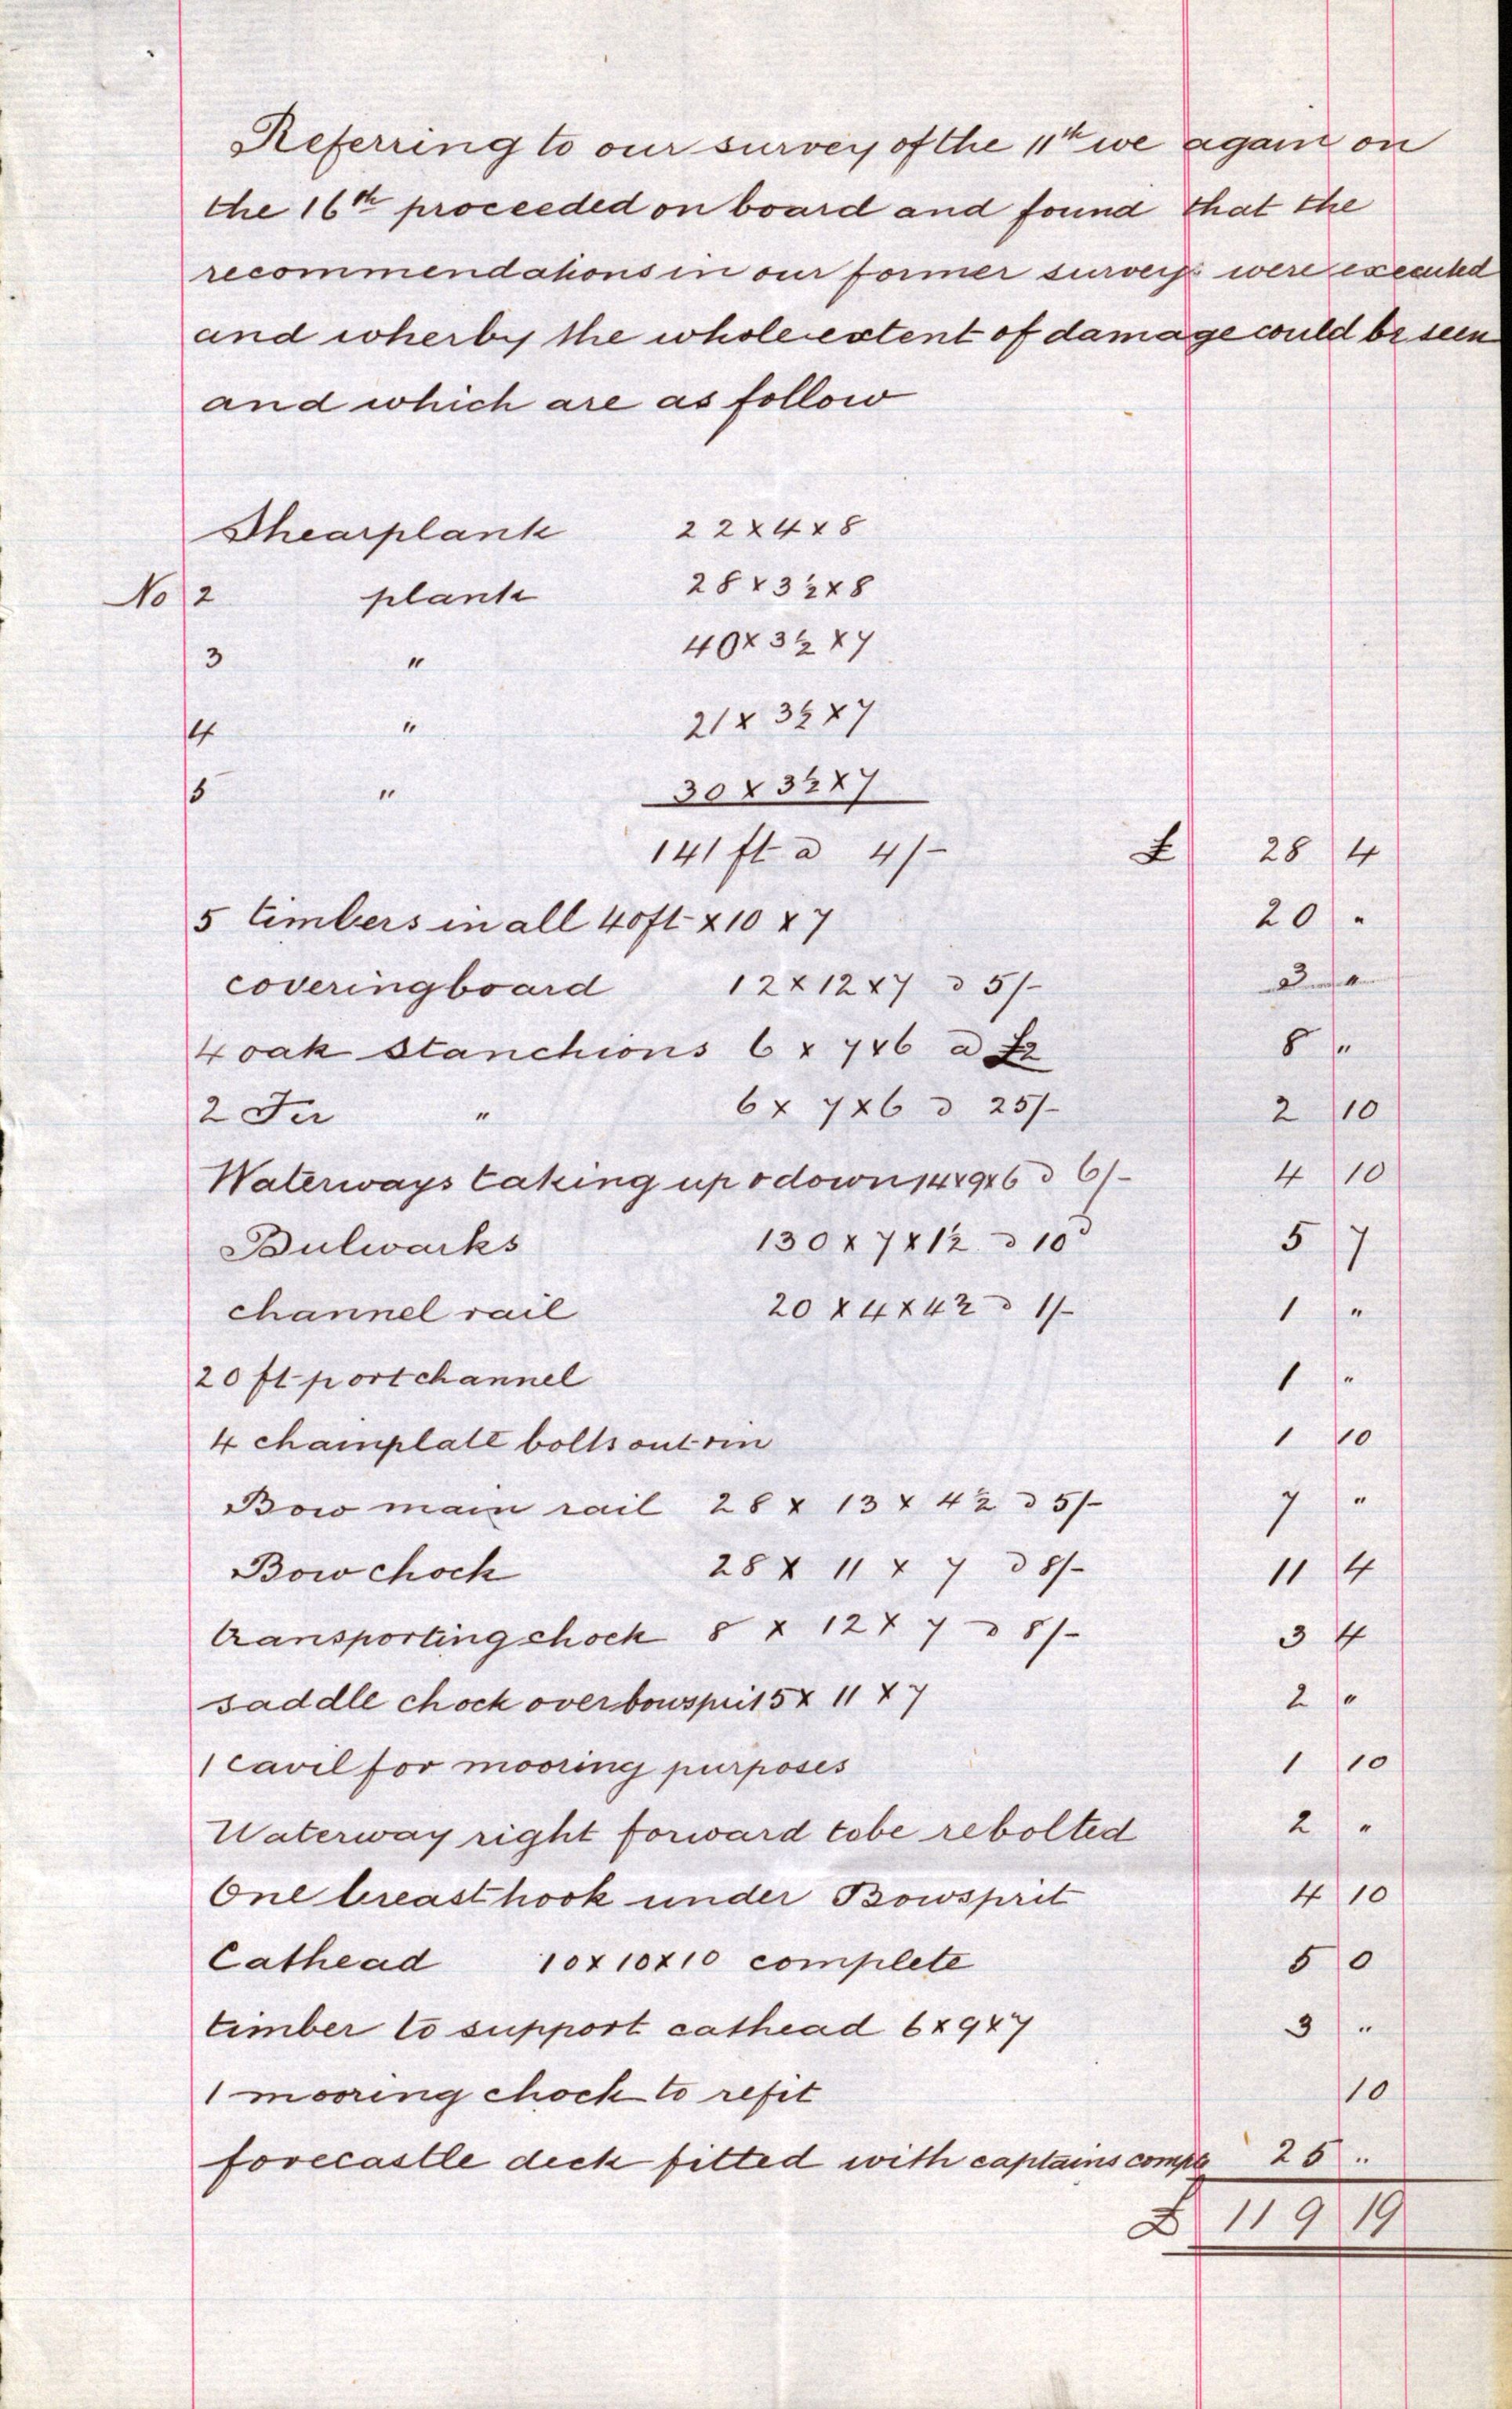 Referring to our survey of the 11th we again on
the 16th proceeded on board and found that the
recommendations in our former surveys were executed
and wherby the whole extent of damage could be seen
and which are as follow
Shearplank 22 x 4 x 8
No 2 plank 28 x 3½ x 8
3 " 40 x 3½ x 7
4 " 21 x 3½ x 7
5 " 30 x 3½ x 7
141 ft a 4/- £ 28 4
5 timbers in all 40ft x 10 x 7 20 "
coveringboard 12 x 12 x 7 a 5/- 3 "
4 oak stanchions 6 x 7 x 6 a £2 8 "
2 Fir " 6 x 7 x 6 a 25/- 2 10
Waterways taking up & down 14 x 9 x 6 a 6/- 4 10
Bulwarks 130 x 7 x 1½ a 10d 5 7
channel rail 20 x 4 x 4½ a 1/- 1 "
20 ft port channel 1 "
4 chainplate bolts out & in 1 10
Bow main rail 28 x 13 x 4½ a 5/- 7 "
Bow chock 28 x 11 x 7 a 8/- 11 4
transporting chock 8 x 12 x 7 a 8/- 3 4
saddle chock over bowsprit 5 x 11 x 7 2 "
1 Cavil for mooring purposes 1 10
Waterway right forward tobe rebolted 2 "
One breasthook under Bowsprit 4 10
Cathead 10 x 10 x 10 complete 5 0
timber to support cathead 6 x 9 x 7 3 "
1 mooring chock to refit 10
forecastle deck fitted with captains comple 25 "
£ 119 19